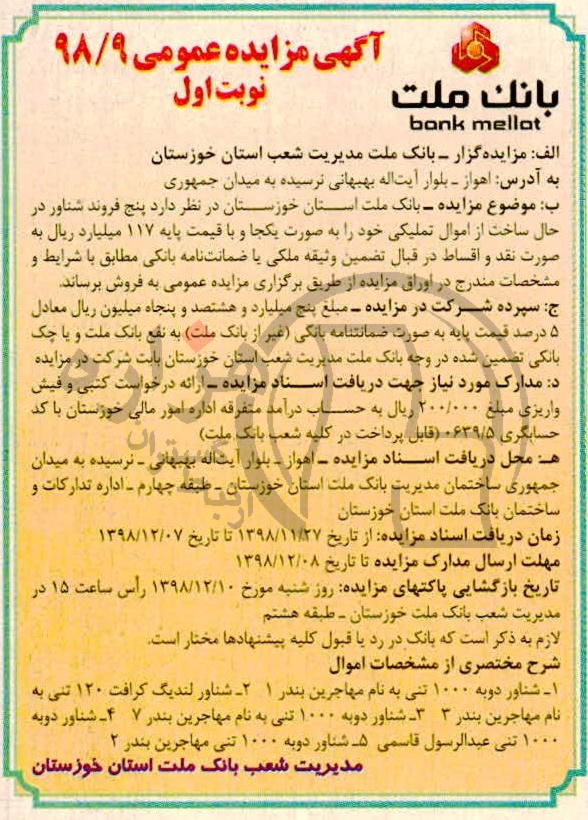 آگهی مزایده عمومی ۹۸/۹
نوبت اول
بانک ملت
bank mellat
الف: مزایده‌گزار ـ بانک ملت مدیریت شعب استان خوزستان
به آدرس: اهواز ـ بلوار آیت‌اله بهبهانی نرسیده به میدان جمهوری
ب: موضوع مزایده ـ بانک ملت استان خوزستان در نظر دارد پنج فروند شناور در
حال ساخت از اموال تملیکی خود را به صورت یکجا و با قیمت پایه ۱۱۷ میلیارد ریال به
صورت نقد و اقساط در قبال تضمین وثیقه ملکی یا ضمانت‌نامه بانکی مطابق با شرایط و
مشخصات مندرج در اوراق مزایده از طریق برگزاری مزایده عمومی به فروش برساند.
ج: سپرده شرکت در مزایده ـ مبلغ پنج میلیارد و هشتصد و پنجاه میلیون ریال معادل
۵ درصد قیمت پایه به صورت ضمانتنامه بانکی (غیر از بانک ملت) به نفع بانک ملت و یا چک
بانکی تضمین شده در وجه بانک ملت مدیریت شعب استان خوزستان بابت شرکت در مزایده
د: مدارک مورد نیاز جهت دریافت اسناد مزایده ـ ارائه درخواست کتبی و فیش
واریزی مبلغ ۲۰۰/۰۰۰ ریال به حساب درآمد متفرقه اداره امور مالی خوزستان با کد
حسابگری ۰۶۳۹/۵ (قابل پرداخت در کلیه شعب بانک ملت)
هـ: محل دریافت اسناد مزایده ـ اهواز ـ بلوار آیت‌اله بهبهانی ـ نرسیده به میدان
جمهوری ساختمان مدیریت بانک ملت استان خوزستان ـ طبقه چهارم ـ اداره تدارکات و
ساختمان بانک ملت استان خوزستان
زمان دریافت اسناد مزایده: از تاریخ ۱۳۹۸/۱۱/۲۷ تا تاریخ ۱۳۹۸/۱۲/۰۷
مهلت ارسال مدارک مزایده تا تاریخ ۱۳۹۸/۱۲/۰۸
تاریخ بازگشایی پاکتهای مزایده: روز شنبه مورخ ۱۳۹۸/۱۲/۱۰ رأس ساعت ۱۵ در
مدیریت شعب بانک ملت خوزستان ـ طبقه هشتم
لازم به ذکر است که بانک در رد یا قبول کلیه پیشنهادها مختار است.
شرح مختصری از مشخصات اموال
۱ـ شناور دوبه ۱۰۰۰ تنی به نام مهاجرین بندر ۱ ۲ـ شناور لندیگ کرافت ۱۲۰ تنی به
نام مهاجرین بندر ۳ ۳ـ شناور دوبه ۱۰۰۰ تنی به نام مهاجرین بندر ۷ ۴ـ شناور دوبه
۱۰۰۰ تنی عبدالرسول قاسمی ۵ـ شناور دوبه ۱۰۰۰ تنی مهاجرین بندر ۲
مدیریت شعب بانک ملت استان خوزستان
هزاره